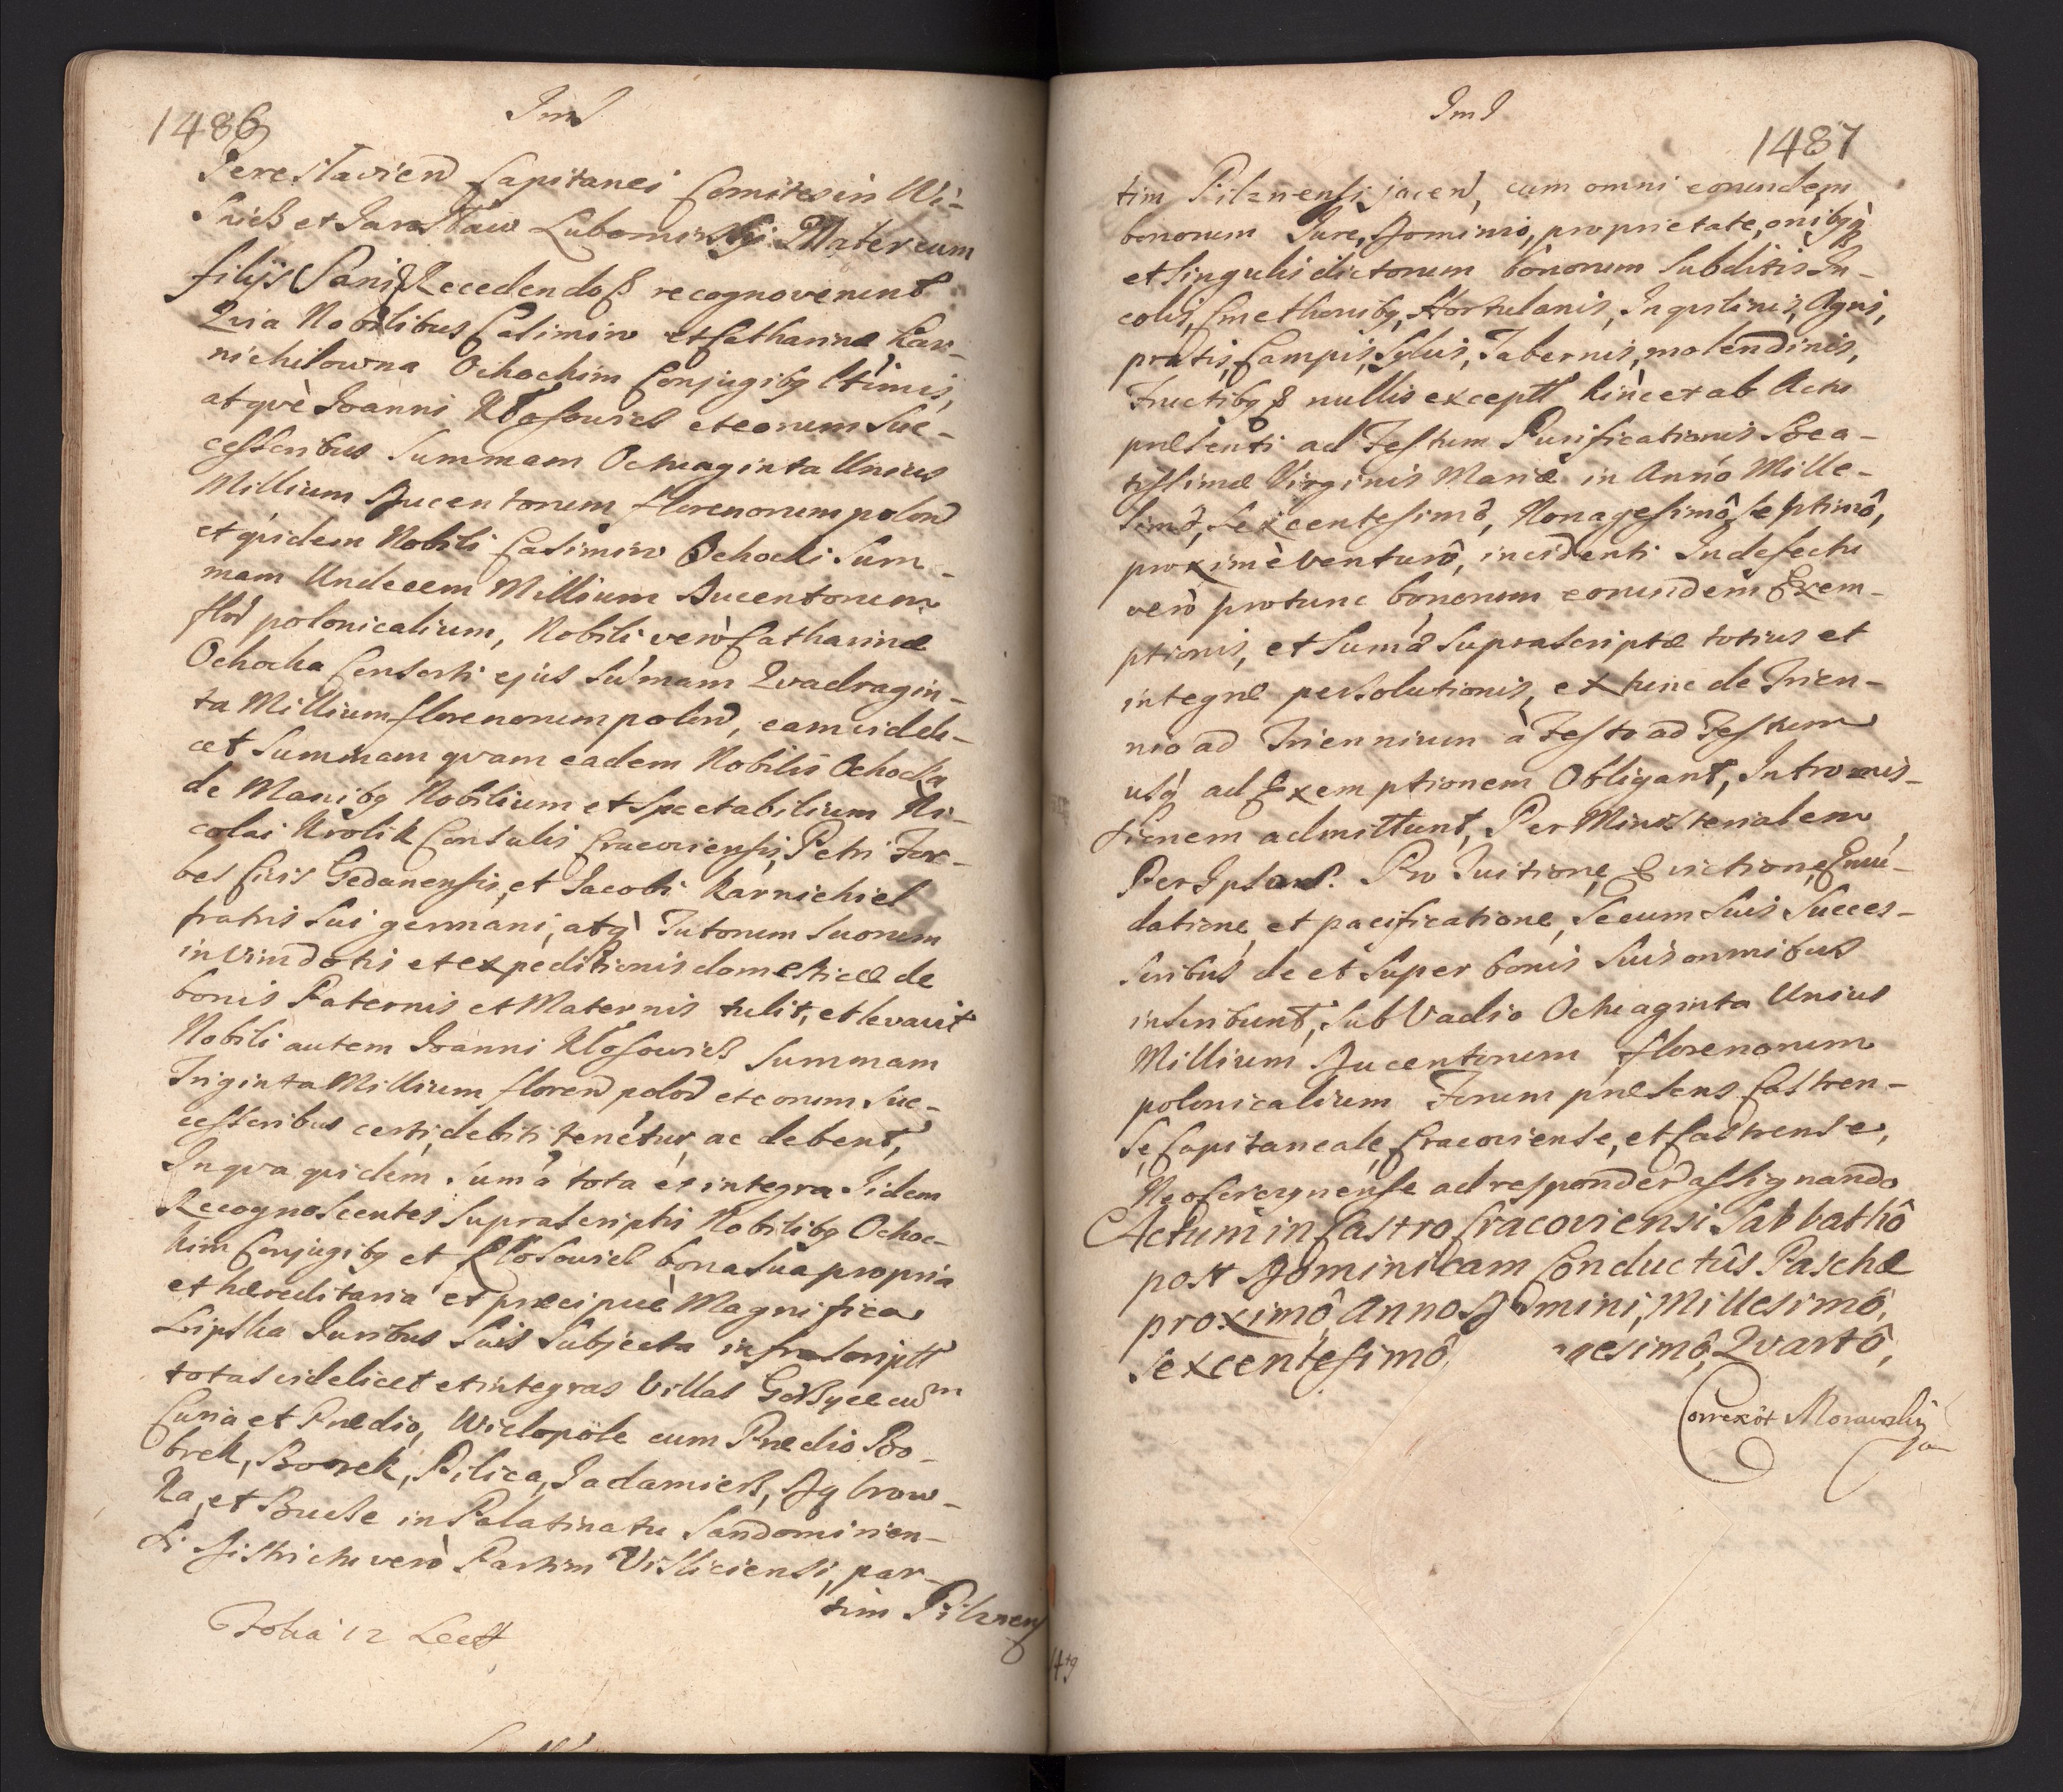 1486
JereSlavien Capitanei Comites in Wi-
Snicz et Jarosław Lubomirskj Mater cum
filijs Sani &Recedendo& recognoverunt
Quia Nobilibus Casimiro et Catharinæ Kar-
nichilowna Ochockim Conjugibq ltimis,
atqvè Joanni Kłosowicz et eorum Suc-
cessoribus Summam Octuaginta Unius
Millium Ducentorum florenorum polon
et qvidem Nobili Casimiro Ochocki Sum-
mam Undecem Millium Ducentorum
flor polonicalium, Nobili verò Catharinæ
Ochocka Consorti ejus Summam Qvadragin-
ta Millium florenorum polon, eam videli-
cet Summam qvam eadem Nobilis Ochocka
de Manibq Nobilium et Spectabilium Ni-
colai Krolik Consulis Cracoviensis, Petri For-
bes Civis Gedanensis, et Jacobi Karnichiel
fratris Sui germani, atq Tutorum Suorum
in vim dotis et expeditionis domesticæ de
bonis Paternis et Maternis tulit, et levavit
Nobili autem Joanni Kłosowicz Summam
Triginta Millium floren polon et eorum Suc-
cessoribus certi debiti tenétur, ac debent,
In qva qvidem Suma tota et integra Jidem
Recognoscentes Suprascriptis Nobilibq Ochoc-
kim Conjugibq et Kłosowicz bona Sua propria
et hæreditaria et præcipuè Magnifica
Lipska Juribus Suis Subjecta infrascriptt
totas videlicet et integras Villas Godzyce cum
Curia et Prædio, Wielopole cum Prædio Bo-
brek, Borek, Pilica, Jadamierz, Dąbrow-
ka, et Brzese in Palatinatu Sandomirien-
Si Districtu verò Partim Visliciensi, par-
tim Pilznen
Folia 12 Lect
Jnd
1487
tim Pilznensi jacen, cum omni eorundem
bonorum Jure, Dominio, proprietate, onibqq
et Singulis dictorum bonorum Subditis In-
colis, Cmethonibq, Hortulanis, Inqvilinis, Agris,
pratis, Campis, Sylvis, Tabernis, molendinis,
Fructibq & nullis exceptt hinc et ab Actu
præsenti ad Festum Purificationis Bea-
tissimæ Virginis Mariæ in Anno Mille-
simô, Sexcentesimô, Nonagesimô, Septimô,
proximè venturô, incidenti In defectu
verò protunc bonorum eorundem Exem-
ptionis, et Sumæ Suprascriptæ totius et
integræ persolutionis, extunc de Trien-
nio ad Triennium à Festo ad Festum
usq ad Exemptionem Obligant, Intromis-
sionem admittunt, Per Ministerialem
Per Ipsum. Pro Tuitione, Evictione, Emun-
datione, et pacificatione, Secum Suis Succes-
Soribus de et Super bonis Suis omnibus
inscribunt, Sub Vadio Octuaginta Unius
Millium Ducentorum florenorum
polonicalium Forum præsens Castren-
Se, Capitaneale, Cracoviense, et Castrense,
Neoscrczynense ad responden assignando
Actum in Castro Cracoviensi Sabbathô
post Dominicam Conductûs Paschæ
proximô Anno Domini, Millesimô,
Sexcentesimô, gesimô, Qvartô,
Correxit Morawsky